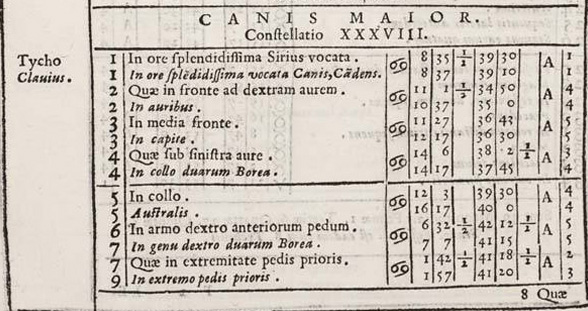 CANIS MAIOR.
Constellatio XXXVIII.
Tycho 1 In ore splendidissima Sirius vocata. ♋ 8 35 1/2 39 30 A 1
Clauius. 1 In ore splēdidissima vocata Canis, Cādens. 8 37 39 10 1
2 Quæ in fronte ad dextram aurem. ♋ 11 1 1/2 34 50 A 4
2 In auribus. 10 37 35 0 4
3 In media fronte. ♋ 11 27 36 43 A 5
3 In capite. 12 17 36 30 5
4 Quæ sub sinistra aure. ♋ 14 6 38 2 1/2 A 3
4 In collo duarum Borea. 14 17 37 45 4
5 In collo. ♋ 12 3 39 30 A 4
5 Australis. 16 17 40 0 4
6 In armo dextro anteriorum pedum. ♋ 6 32 1/2 42 12 1/2 A 5
7 In genu dextro duarum Borea. 7 7 41 15 5
7 Quæ in extremitate pedis prioris. ♋ 1 42 1/2 41 18 1/2 A 2
9 In extremo pedis prioris. 1 57 41 20 3
8 Quæ